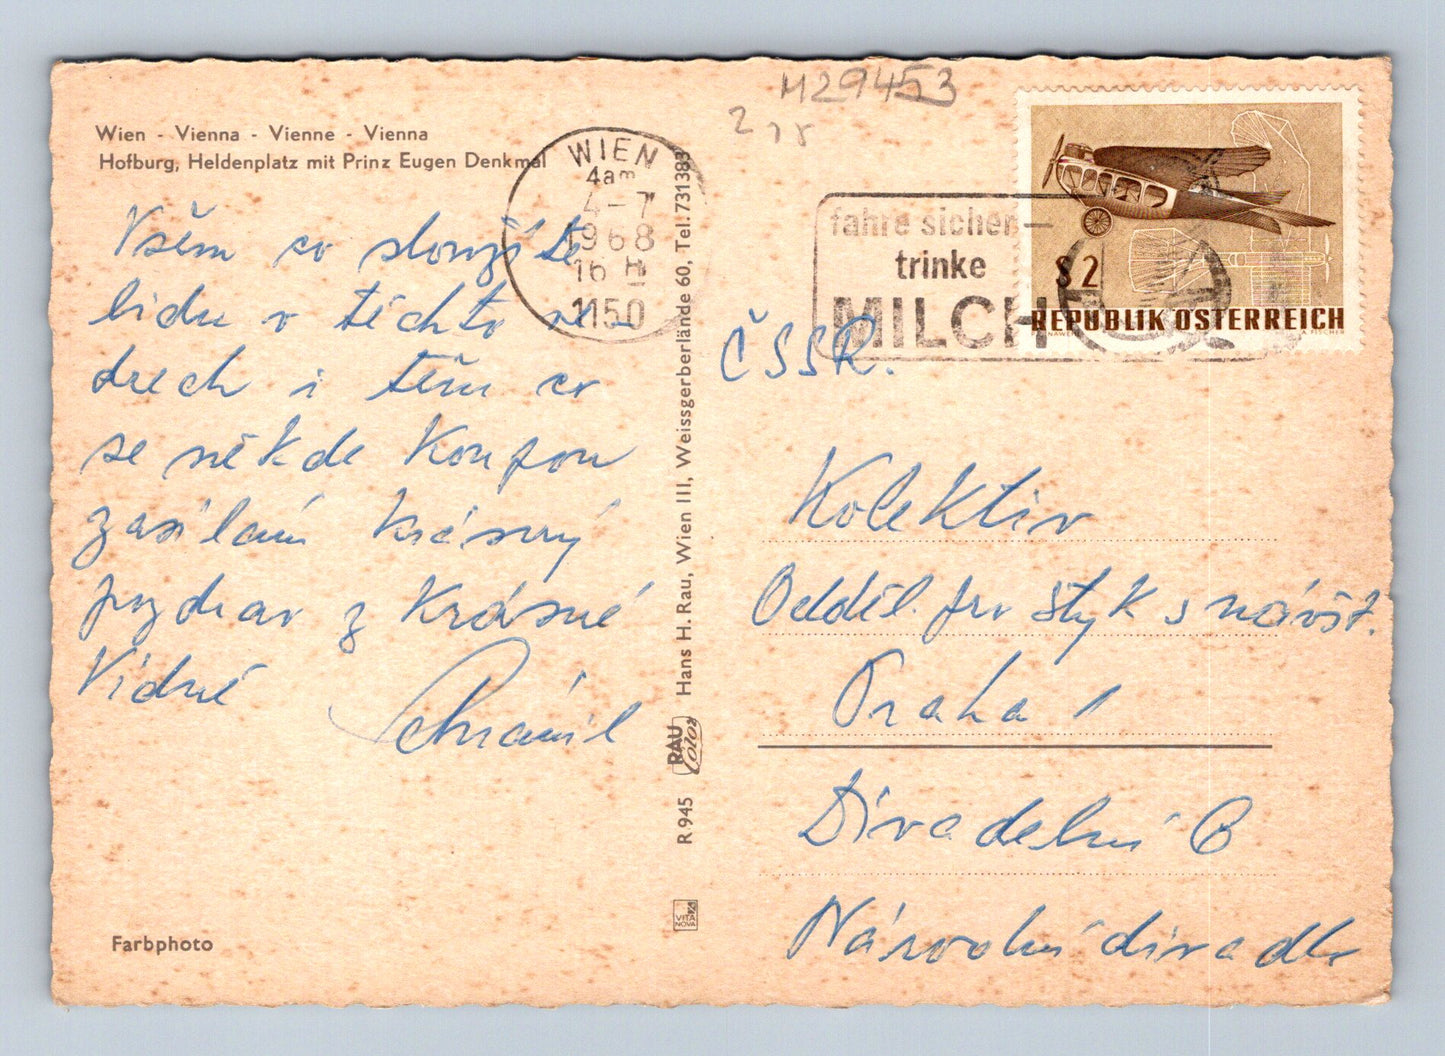 Wien - Vienna - Vienne - Vienna
Hofburg, Heldenplatz mit Prinz Eugen Denkmal
Všem co slouží té
lidu v těchto ve-
drech i těm co
se někde koupou
zasílám krásný
pozdrav z krásné
Vídně
Farbphoto
WIEN
4am
4-7
1968
16 H
1150
R 945 RAU Color Hans H. Rau, Wien III, Weissgerberlände 60, Tel. 731383
VITA NOVA
M29453
2
fahre sicher —
trinke
MILCH
S 2
REPUBLIK ÖSTERREICH
ČSSR.
Kolektiv
Odděl. pro styk s návšt.
Praha 1
Divadelní 6
Národní divadlo